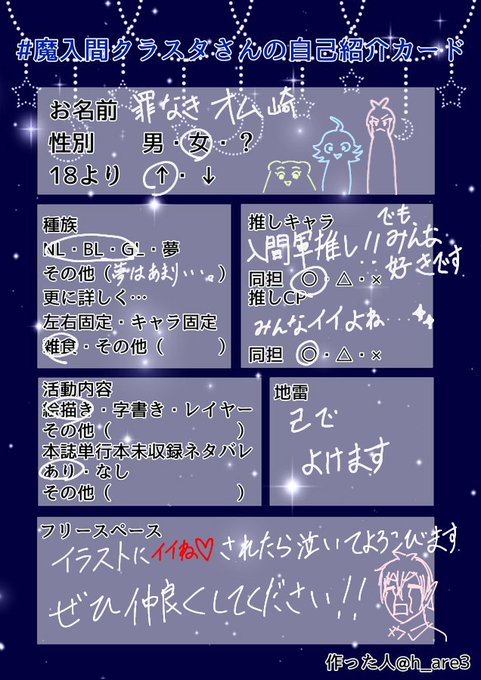 #魔入間クラスタさんの自己紹介カード
お名前 罪なき 松崎
性別 男・女・?
18より ↑・↓
種族
NL・BL・GL・夢
その他(夢はあまり・・・。)
更に詳しく…
左右固定・キャラ固定
雑食・その他( )
推しキャラ
入間軍推し!! でも みんな 好きです
同担 ○・△・×
推しCP
みんなイイよね・・・・
同担 ○・△・×
活動内容
絵描き・字書き・レイヤー
その他( )
本誌単行本未収録ネタバレ
あり・なし
その他( )
地雷
己で
よけます
フリースペース
イラストにイイね♡されたら泣いてよろこびます
ぜひ仲良くしてください!!
作った人@h_are3